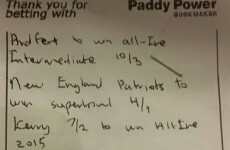 Thank you for
betting with
Paddy Power
BOOKMAKER
Ardfert to wn all-Ire
Intermediate 10/3
New England Patriots to
wn superbowl 4/1
Kerry 7/2 to wn All Ire
2015